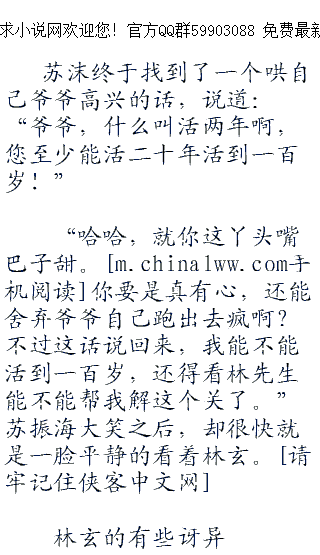 求小说网欢迎您！官方QQ群59903088 免费最新
苏沫终于找到了一个哄自
己爷爷高兴的话，说道：
“爷爷，什么叫活两年啊，
您至少能活二十年活到一百
岁！”
“哈哈，就你这丫头嘴
巴子甜。[m.china1ww.com手
机阅读]你要是真有心，还能
舍弃爷爷自己跑出去疯啊？
不过这话说回来，我能不能
活到一百岁，还得看林先生
能不能帮我解这个关了。”
苏振海大笑之后，却很快就
是一脸平静的看着林玄。[请
牢记住侠客中文网]
林玄的有些讶异